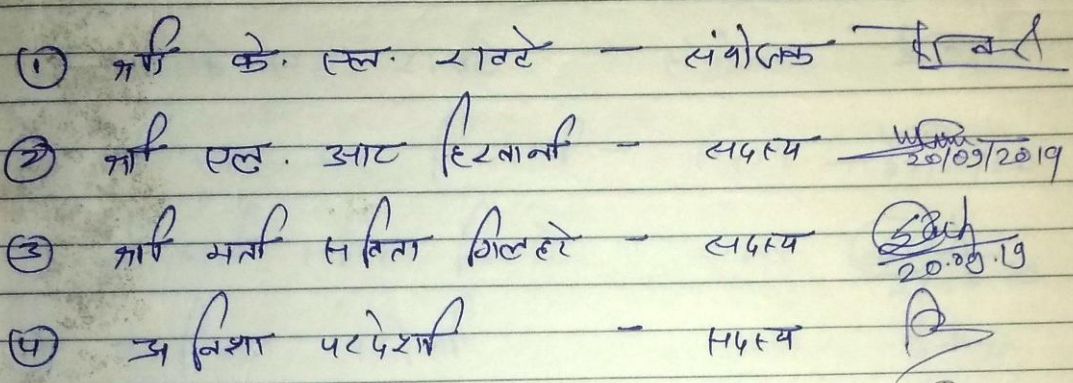 ① श्री के. एल. रावटे - संयोजक
② श्री एल. आर हिरवानी - सदस्य 20/09/2019
③ श्री मती सविता गिलहरे - सदस्य 20.09.19
④ अनिशा परदेशी - सदस्य